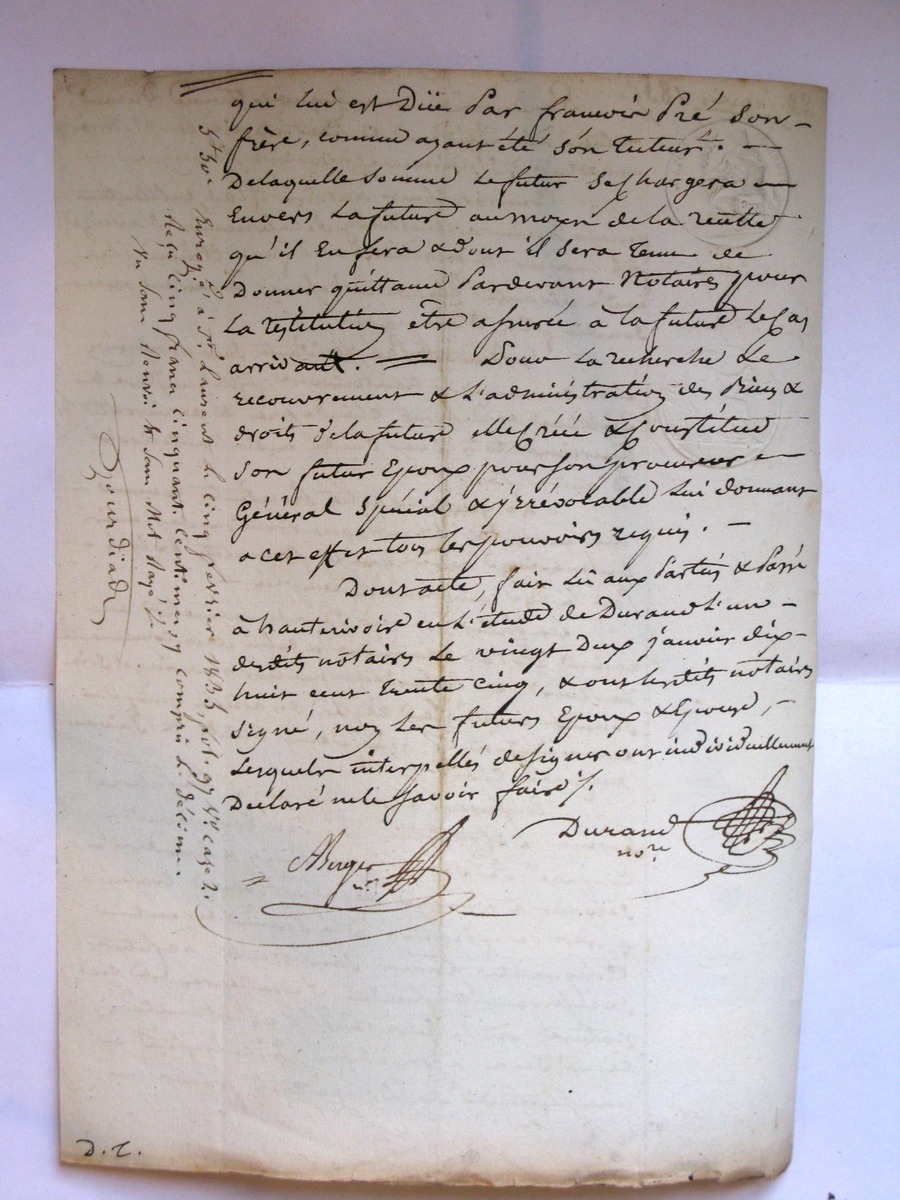 qui lui est Düe par francois Pré son
frère, comme ayant été són tuteur. —
Delaquelle somme Le futur se Chargera —
Envers La future au moyen de la recette
qu'il En fera & dont il sera tenu de
Donner quittance Pardevant Notaires pour
La réstitution être assurée à la future Le Cas
arrivant. = Pour La recherche Le
recouvrement & L'administration des Biens &
droits de la future elle Créé & Constitue
Son futur Epoux pour son procureur —
Général Spécial & yrrévocable Lui donnant
a cet effet tous les pouvoirs requis. —
Dont acte, fait Lû aux Parties & Passé
à hauterivoire en L'étude de Durand L'un —
desdits notaires Le vingt Deux janvier dix-
huit cent trente Cinq, & ont lesdits notaires
signé, non les futurs Epoux & Epouse, —
Lesquels interpellés de signer ont individuellement
Déclaré ne le Savoir faire /.
Durand
nore
ABerger
nre
5f 50c
Enregé à St Laurent le cinq février 1835, fol. 97 Vo case 2.
Reçu Cinq francs Cinquante Centimes y compris le décime
Un Sans Renvoi & Sans Mot Rayé
Gourdiad
D. T.